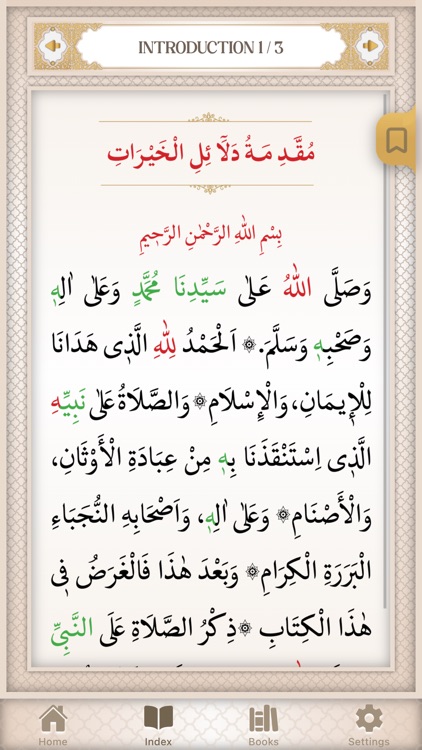 INTRODUCTION 1 / 3
مُقَّدِ مَةُ دَلَآ ئِلِ الْخَيْرَاتِ
بِسْمِ اللهِ الرَّحْمٰنِ الرَّحِيمِ
وَصَلَّى اللهُ عَلٰى سَيِّدِنَا مُحَمَّدٍ وَعَلٰى اٰلِهٖ
وَصَحْبِهٖ وَسَلَّمَ.۞ اَلْحَمْدُ لِلّٰهِ الَّذِى هَدَانَا
لِلْإِيمَانِ، وَالْإِسْلَامِ۞ وَالصَّلَاةُ عَلٰى نَبِيِّهِ
الَّذِى اِسْتَنْقَذَنَا بِهٖ مِنْ عِبَادَةِ الْأَوْثَانِ،
وَالْأَصْنَامِ۞ وَعَلٰى اٰلِهٖ، وَاَصْحَابِهِ النُّجَبَاءِ
الْبَرَرَةِ الْكِرَامِ۞ وَبَعْدَ هٰذَا فَالْغَرَضُ فِى
هٰذَا الْكِتَابِ ۞ذِكْرُ الصَّلَاةِ عَلَى النَّبِيِّ
Home Index Books Settings